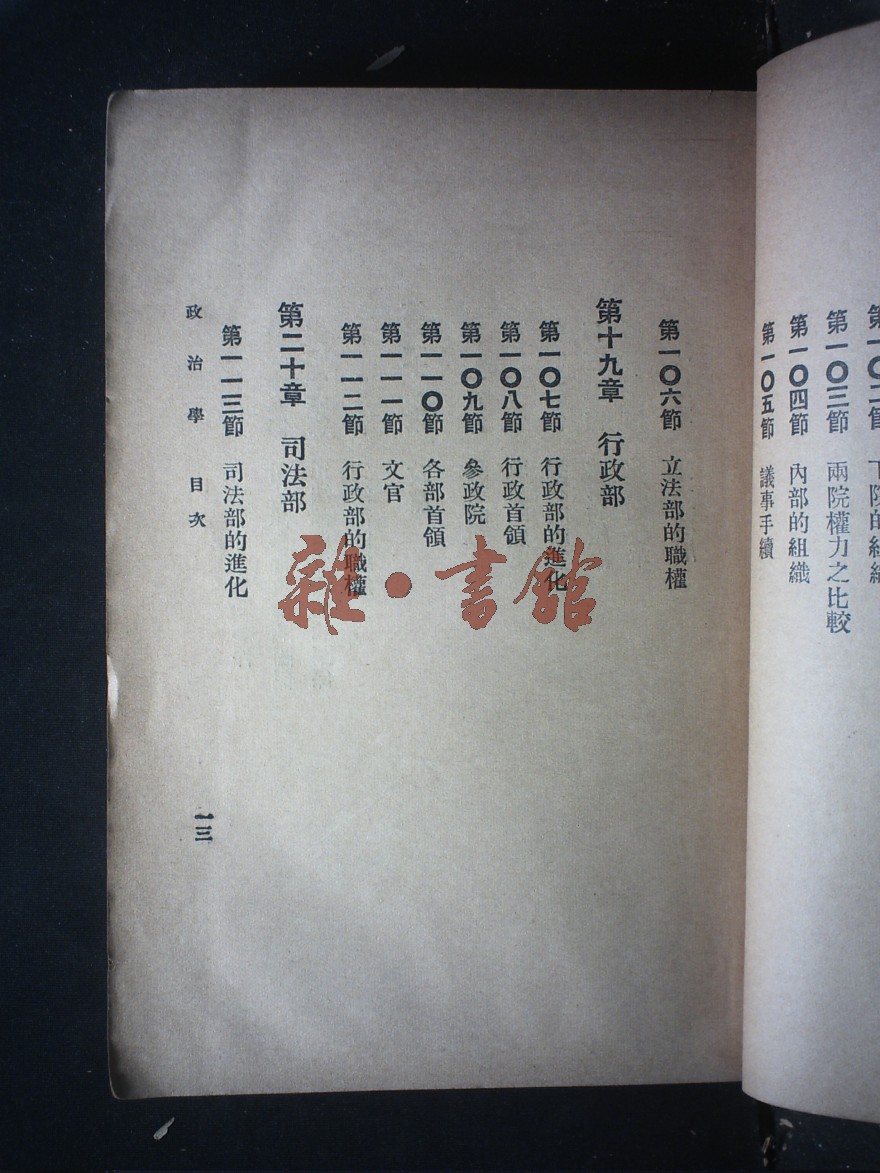 第一〇二節 下院的組織
第一〇三節 兩院權力之比較
第一〇四節 內部的組織
第一〇五節 議事手續
第一〇六節 立法部的職權
第十九章 行政部
第一〇七節 行政部的進化
第一〇八節 行政首領
第一〇九節 參政院
第一一〇節 各部首領
第一一一節 文官
第一一二節 行政部的職權
第二十章 司法部
第一一三節 司法部的進化
政治學 目次
一三
雜·書館